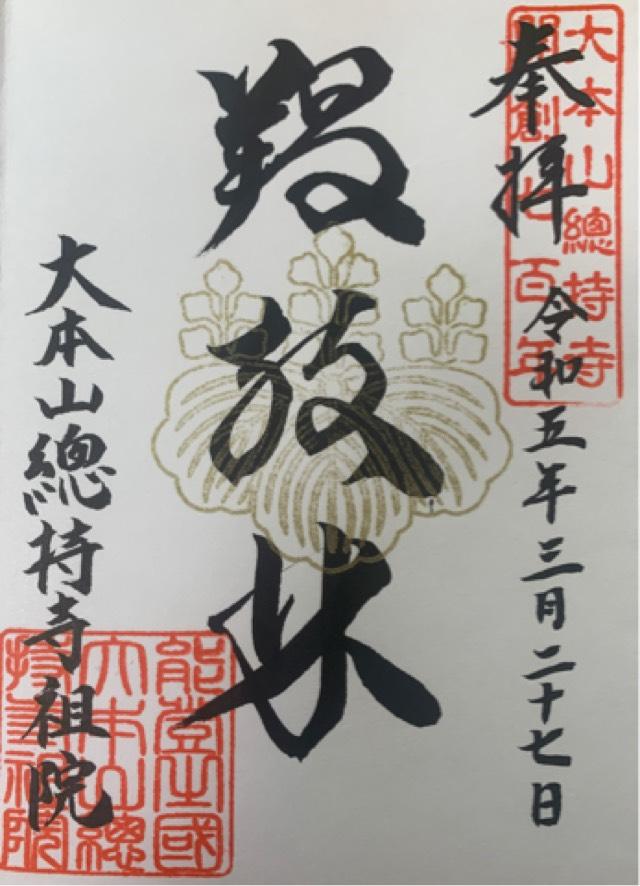 大本山總持寺
開創七百年
奉拝
令和五年三月二十七日
放
大本山總持寺祖院
能登國
大本山總
持寺祖院